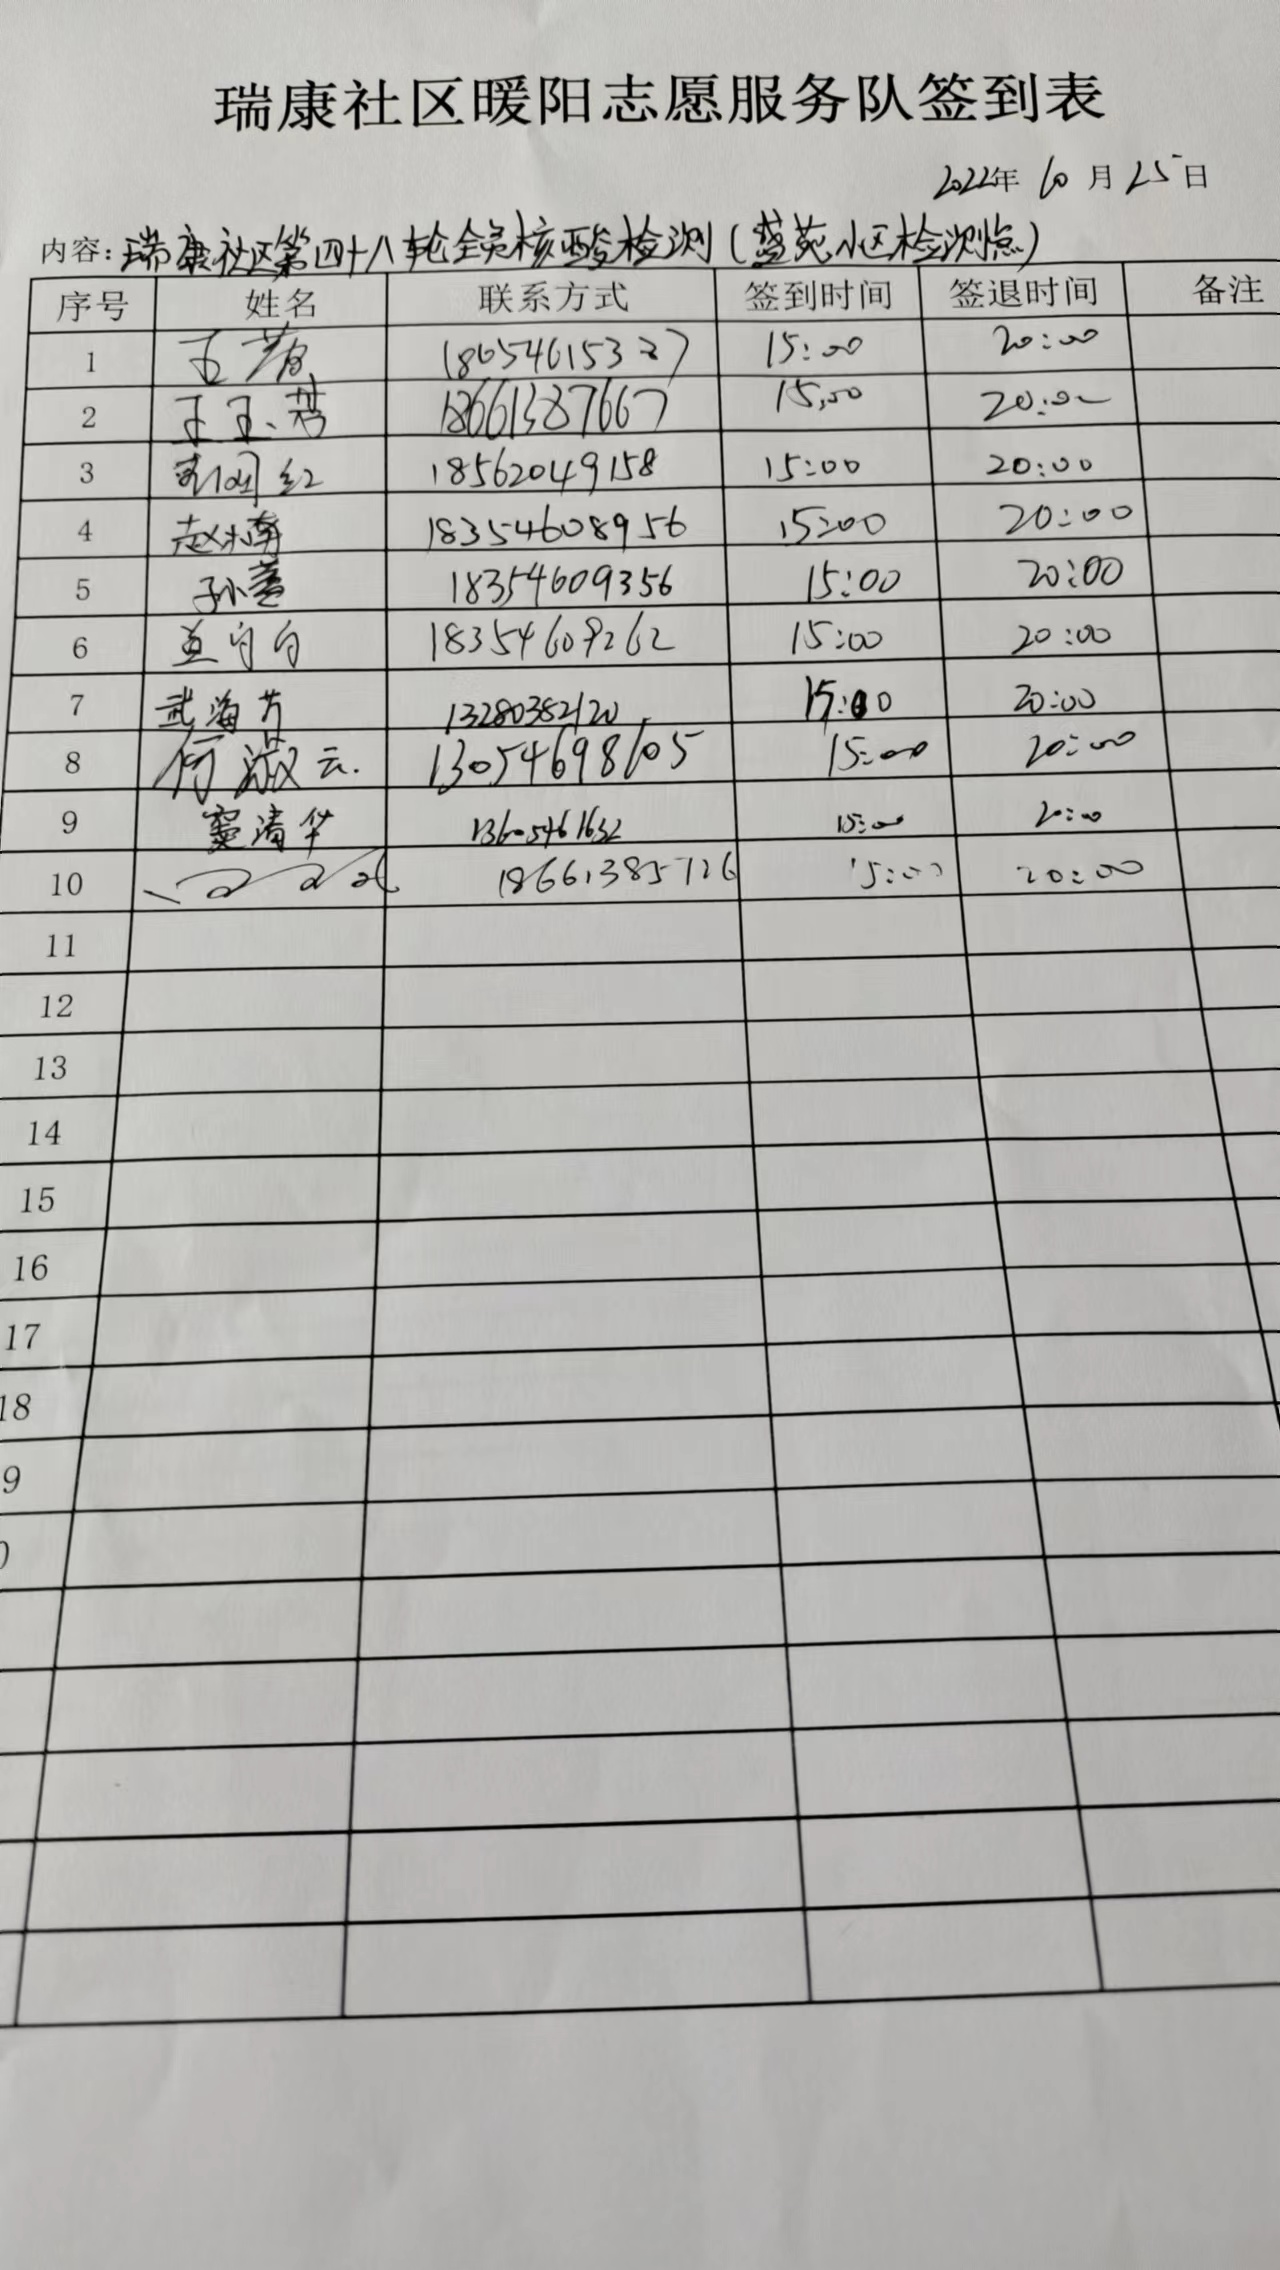 瑞康社区暖阳志愿服务队签到表
2022年 10 月 25 日
内容：瑞康社区第四十八轮全员核酸检测（盛苑小区检测点）
序号 姓名 联系方式 签到时间 签退时间 备注
1 王 15:00 20:00
2 王玉 18661387667 15:00 20:00
3 红 18562049158 15:00 20:00
4 赵 18354608956 15:00 20:00
5 孙 18354609356 15:00 20:00
6 18354609262 15:00 20:00
7 武海芳 13280382120 15:00 20:00
8 何淑云 13054698105 15:00 20:00
9 窦清华 13605461632 15:00 20:00
10 18661385726 15:00 20:00
11
12
13
14
15
16
17
18
9
0